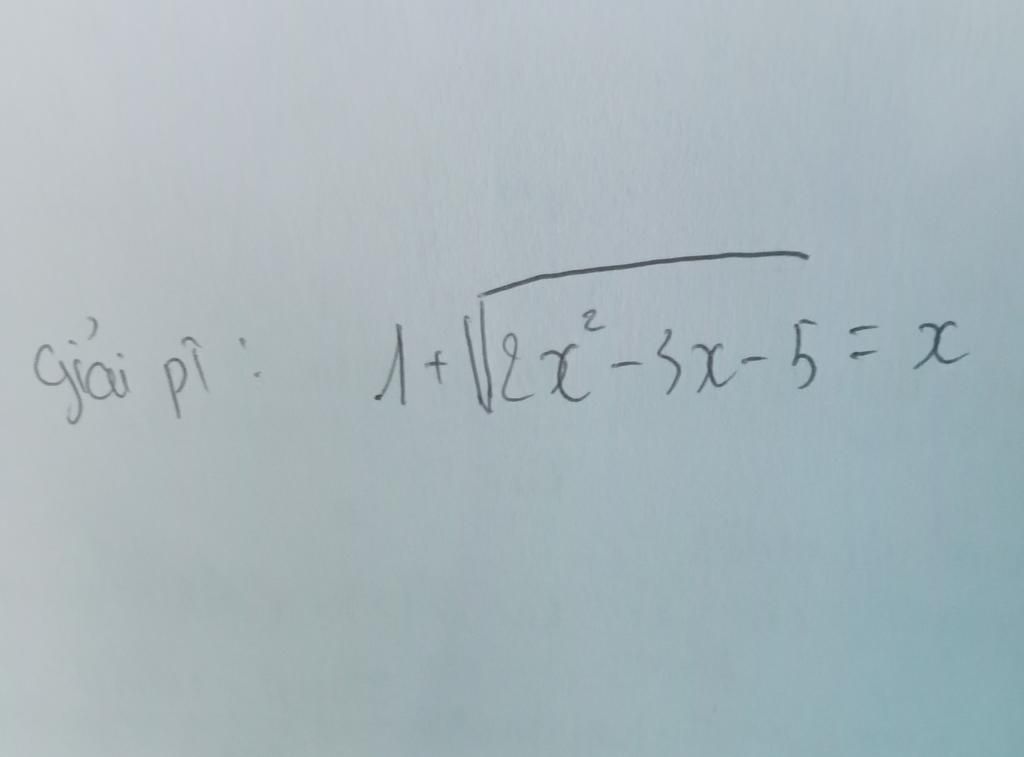 Giải pt : 1 + √(2x² - 3x - 5) = x